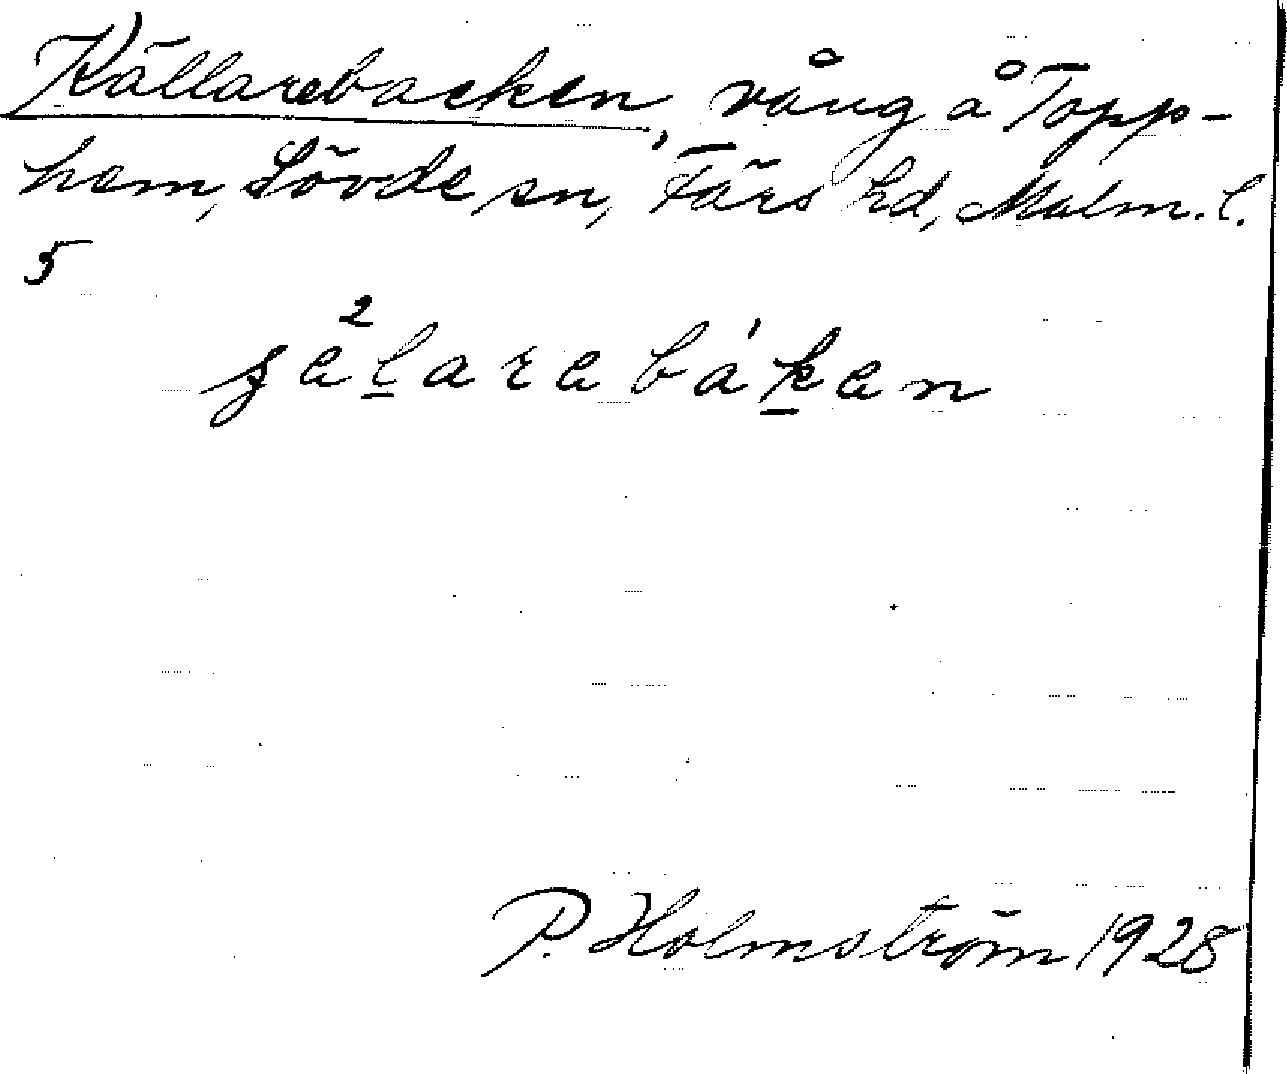 Källarebacken, vång å Topp-
hem, Sövde sn, Färs hd, Malm. l.
5
2
ʃälarebáken
P. Holmström 1928